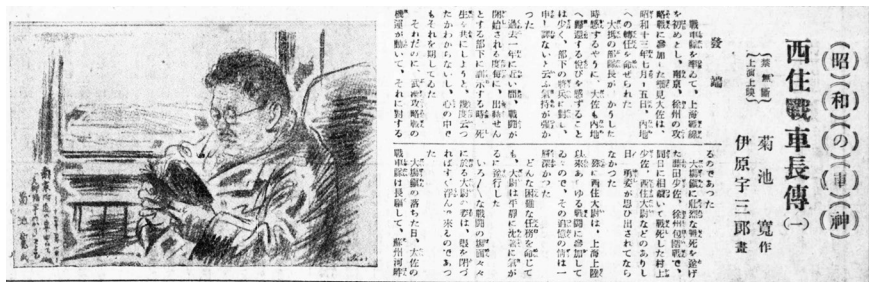 (昭)(和)(の)(軍)(神)
西住戰車長傳(一)
禁無斷
上演上映
菊池 寬作
伊原宇三郎畫
發端
戰車隊を率ゐて、上海戰線
を初めとし、南京、徐州の攻
略戰に參加した細見大佐は、
昭和十三年七月十五日、内地
への轉任を命ぜられた
大抵の部隊長が、かうした
時感ずるやうに、大佐も内地
へ歸還する悅びを感ずること
は少く、部下の將兵に對し、
申し譯ないと云ふ氣持が强か
つた
過去一年に近い間、戰鬪が
開始される度每に、出動せん
とする部下に訓示する時、死
生を共にしようと、幾度云つ
たかわからないし、心の中で
もそれを期してゐた
それだのに、武漢攻略戰の
機運が動いて、それに對する
るのであつた
大場鎭に壯烈な戰死を遂げ
た 田少佐、徐州包圍戰で、
同日に相前後して戰死した村上
少佐、西住大尉などのありし
日の勇姿が思ひ出されてなら
なかつた
殊に西住大尉は、上海上陸
以來あらゆる戰鬪に參加して
ゐるので、その追憶の情は一
層深かつた
どんな困難な任務を命じて
も、大尉は平靜に沈着に氣が
るに遂行した
いろ/\な戰鬪の場面々々
に於る大尉の姿は、眼を閉づ
ればすぐ浮んで來るのであつ
た
大場鎭の落ちた日、大佐の
戰車隊は長驅して、蘇州河畔
南京
菊池寛氏